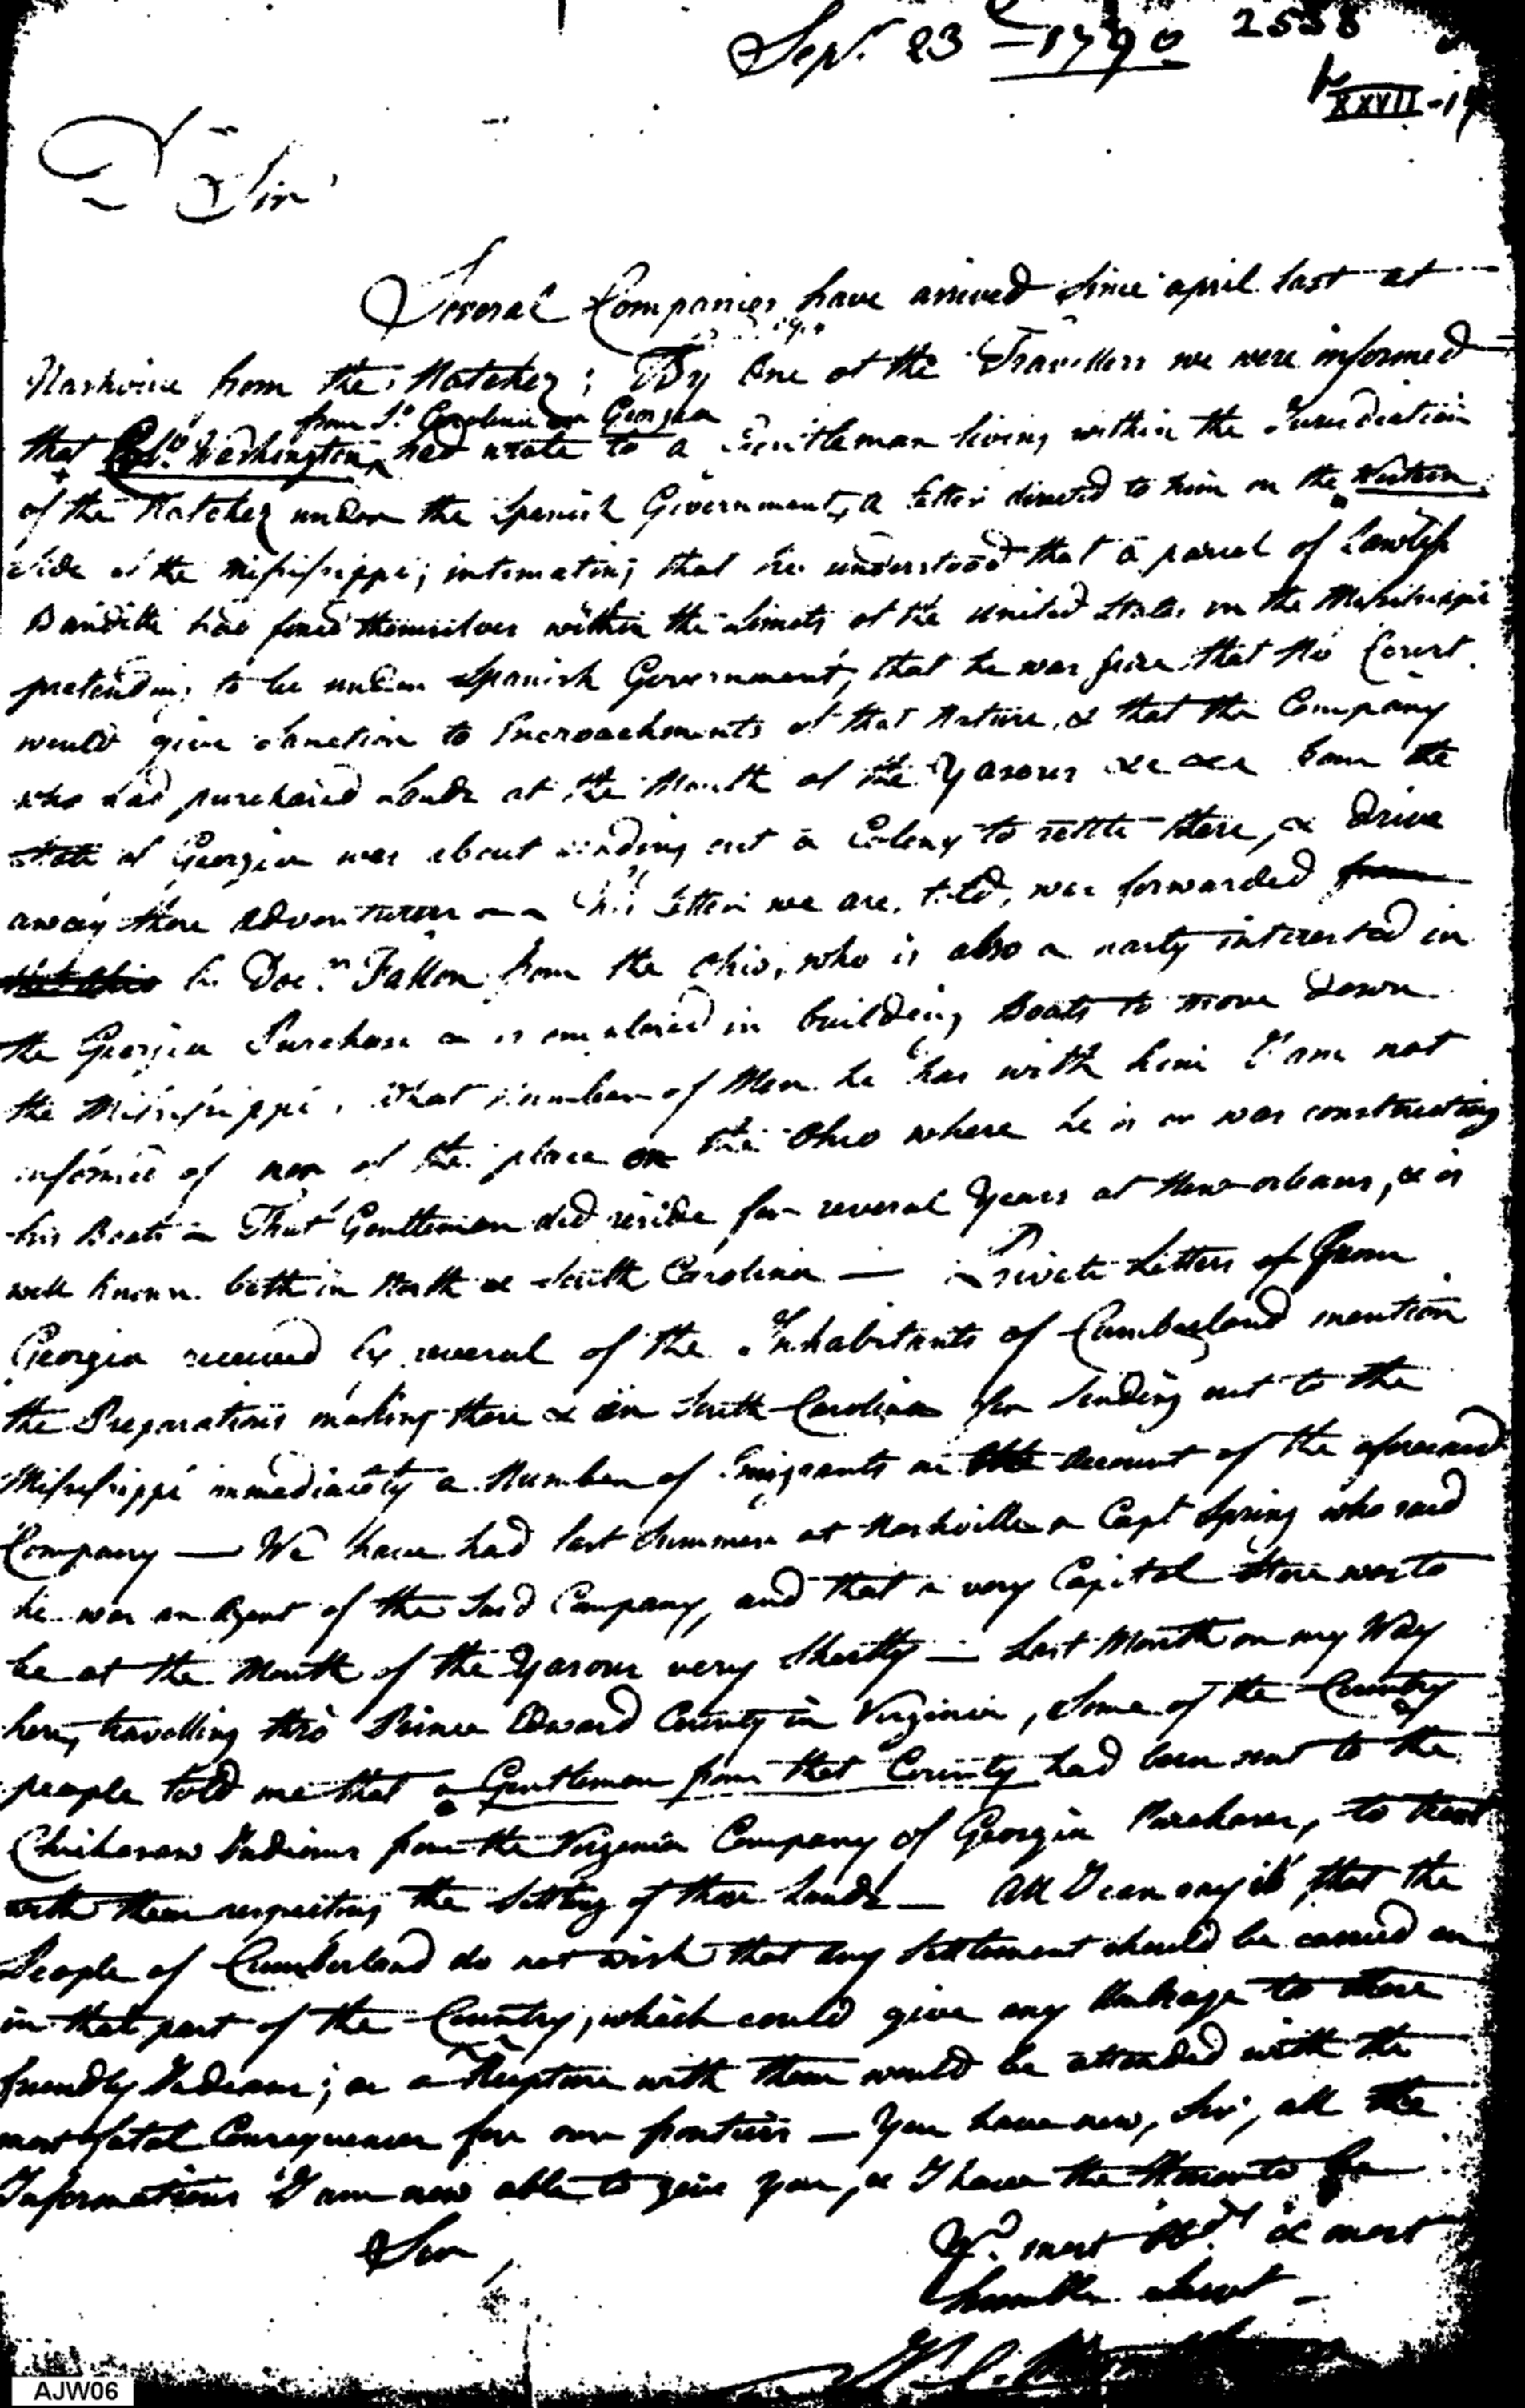 Sepr. 23 - 1790 2558
XXVII-1
Dr Sir
Several Companies have arrived Since april last at
Nashville from the Natchez; By One of the Travellers we were informed
from So. Carolina or Georgia
that Colo. Washington, had wrote to a Gentleman living within the Jurisdiction
of the Natchez under the Spanish Government, a letter directed to him on the Western
Side of the Mississippi; intimating that he understood that a parcel of Lawless
Banditti had fixed themselves within the Limits of the United States on the Mississippi
pretending to be under Spanish Government, that he was sure that No Court
would give Sanction to Encroachments of that Nature, & that the Company
who had purchased Lands at the Mouth of the Yasous &c &ca from the
State of Georgia was about sending out a Colony to settle there, & drive
away those Adventurers — This letter we are, told, was forwarded from
the Ohio by Docr. Fallon from the Ohio, who is also a party interested in
the Georgia Purchase & is employed in building Boats to move down
the Mississippi. What Number of Men he has with him I am not
informed of nor of the place on the Ohio where he is or was constructing
his Boats — That Gentleman did reside for several Years at New-orleans, & is
well known both in North & South Carolina — Private Letters of from
Georgia received by several of the Inhabitants of Cumberland mention
the Preparations making there & in South-Carolina for Sending out to the
Mississippi immediately a Number of Emigrants on the Account of the aforesaid
Company — We have had last Summer at Nashville a Capt Spring who said
he was an Agent of the Said Company, and that a very Capital Store was to
be at the Mouth of the Yasous very Shortly — Last Month on my Way
here, travelling thro Prince Edward County in Virginia, Some of the Country
people told me that a Gentleman from that County had been sent to the
Chickasaw Indians from the Virginia Company of Georgia Purchaser, to treat
with them respecting the Settling of those Lands — All I can say is, that the
People of Cumberland do not wish that any Settlement should be carried on
in that part of the Country, which could give any Umbrage to those
friendly Indians; as a Rupture with them would be attended with the
most fatal Consequences for our frontiers — You have now, Sir, all the
Informations I am now able to give you, & I have the Honor to be
Sir,
Yr. most Obdt & most
humble Servt —
AJW06